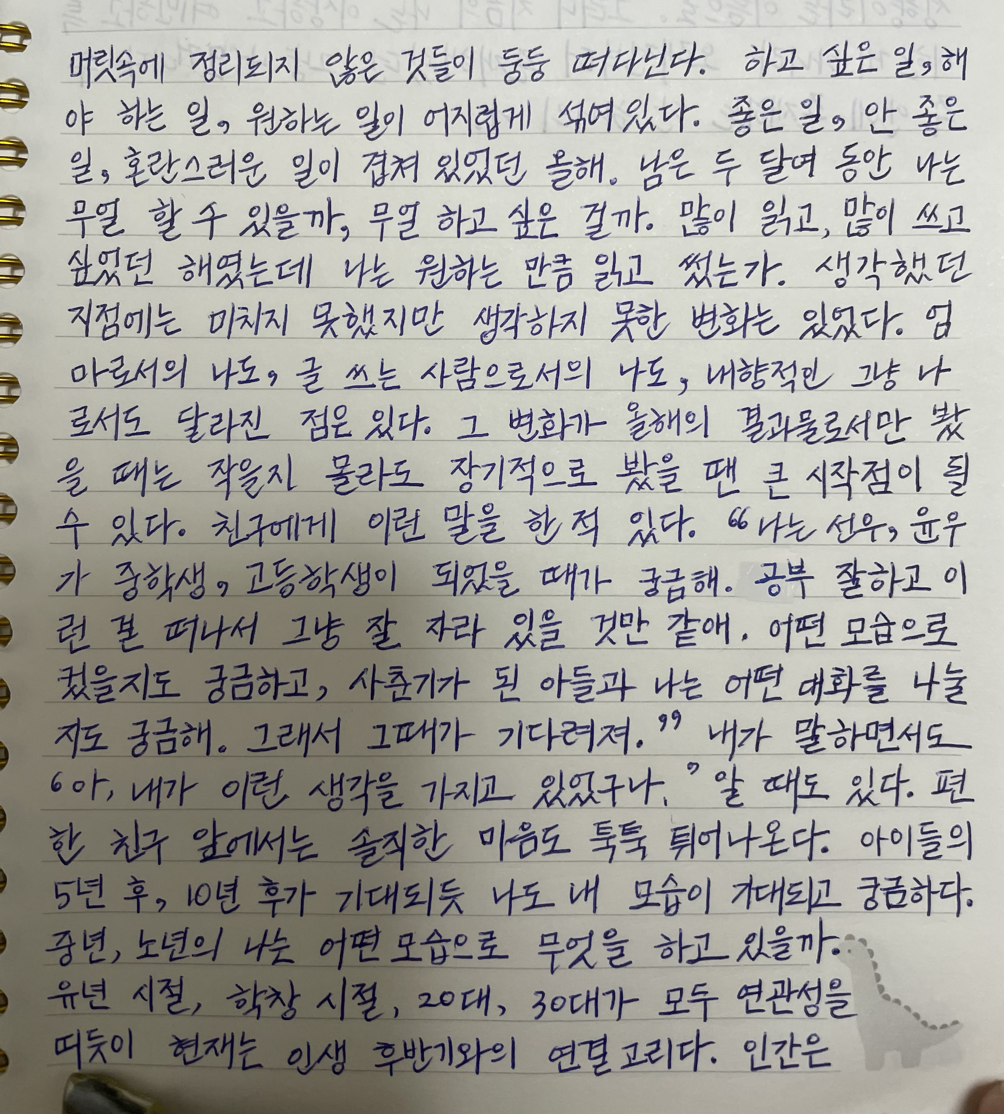 머릿속에 정리되지 않은 것들이 둥둥 떠다닌다. 하고 싶은 일, 해
야 하는 일, 원하는 일이 어지럽게 섞여있다. 좋은 일, 안 좋은
일, 혼란스러운 일이 겹쳐 있었던 올해. 남은 두 달여 동안 나는
무얼 할 수 있을까, 무얼 하고 싶은 걸까. 많이 읽고, 많이 쓰고
싶었던 해였는데 나는 원하는 만큼 읽고 썼는가. 생각했던
지점에는 미치지 못했지만 생각하지 못한 변화는 있었다. 엄
마로서의 나도, 글 쓰는 사람으로서의 나도, 내향적인 그냥 나
로서도 달라진 점은 있다. 그 변화가 올해의 결과물로서만 봤
을 때는 작을지 몰라도 장기적으로 봤을 땐 큰 시작점이 될
수 있다. 친구에게 이런 말을 한 적 있다. “나는 선우, 윤우
가 중학생, 고등학생이 되었을 때가 궁금해. 공부 잘하고 이
런 걸 떠나서 그냥 잘 자라 있을 것만 같애. 어떤 모습으로
컸을지도 궁금하고, 사춘기가 된 아들과 나는 어떤 대화를 나눌
지도 궁금해. 그래서 그때가 기다려져.” 내가 말하면서도
‘아, 내가 이런 생각을 가지고 있었구나.’ 알 때도 있다. 편
한 친구 앞에서는 솔직한 마음도 툭툭 튀어나온다. 아이들의
5년 후, 10년 후가 기대되듯 나도 내 모습이 기대되고 궁금하다.
중년, 노년의 나는 어떤 모습으로 무엇을 하고 있을까.
유년 시절, 학창 시절, 20대, 30대가 모두 연관성을
띠듯이 현재는 인생 후반기와의 연결고리다. 인간은